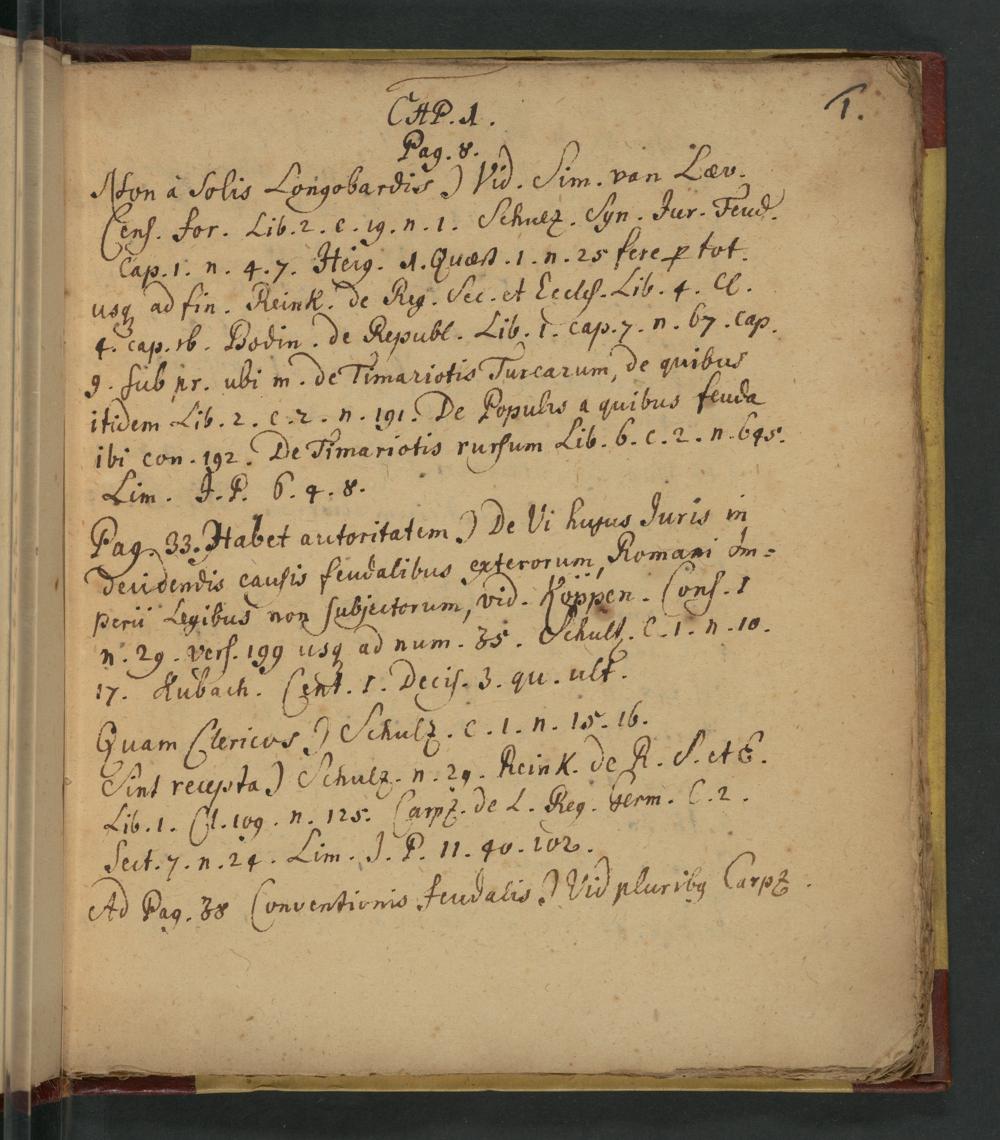 1.
CAP. 1.
Pag. 8.
Non à Solis Longobardis) Vid. Sim. van Læv.
Cens. for. Lib. 2. c. 19. n. 1. Schulz. Syn. Jur. Feud.
Cap. 1. n. 4. 7. Heig. 1. Quæst. 1. n. 25 fere p tot.
usq ad fin. Reink. de Reg. Sec. et Eccles. Lib. 4. Cl.
4. cap. 16. Bodin. de Republ. Lib. 1. cap. 7. n. 67. cap.
9. sub pr. ubi m. de Timariotis Turcarum, de quibus
itidem Lib. 2. c. 2. n. 191. De Populis a quibus feuda
ibi con. 192. De Timariotis rursum Lib. 6. c. 2. n. 645.
Lim. J. P. 6. 4. 8.
Pag. 33. Habet autoritatem) De Vi hujus Juris in
decidendis causis feudalibus exterorum, Romani Im=
perii Legibus non subjectorum, vid. Köppen. Cons. 1
n. 29. vers. 199 usq ad num. 35. Schultz. C. 1. n. 10.
17. Rubach. Cent. 1. Decis. 3. qu. ult.
Quam Clericos) Schulz. c. 1. n. 15. 16.
Sint recepta) Schulz. n. 29. Reink. de R. S. et E.
Lib. 1. Cl. 109. n. 125. Carpz. de L. Reg. Germ. C. 2.
Sect. 7. n. 24. Lim. J. P. 11. 40. 102.
Ad Pag. 38 Conventionis feudalis) Vid pluribq Carpz.